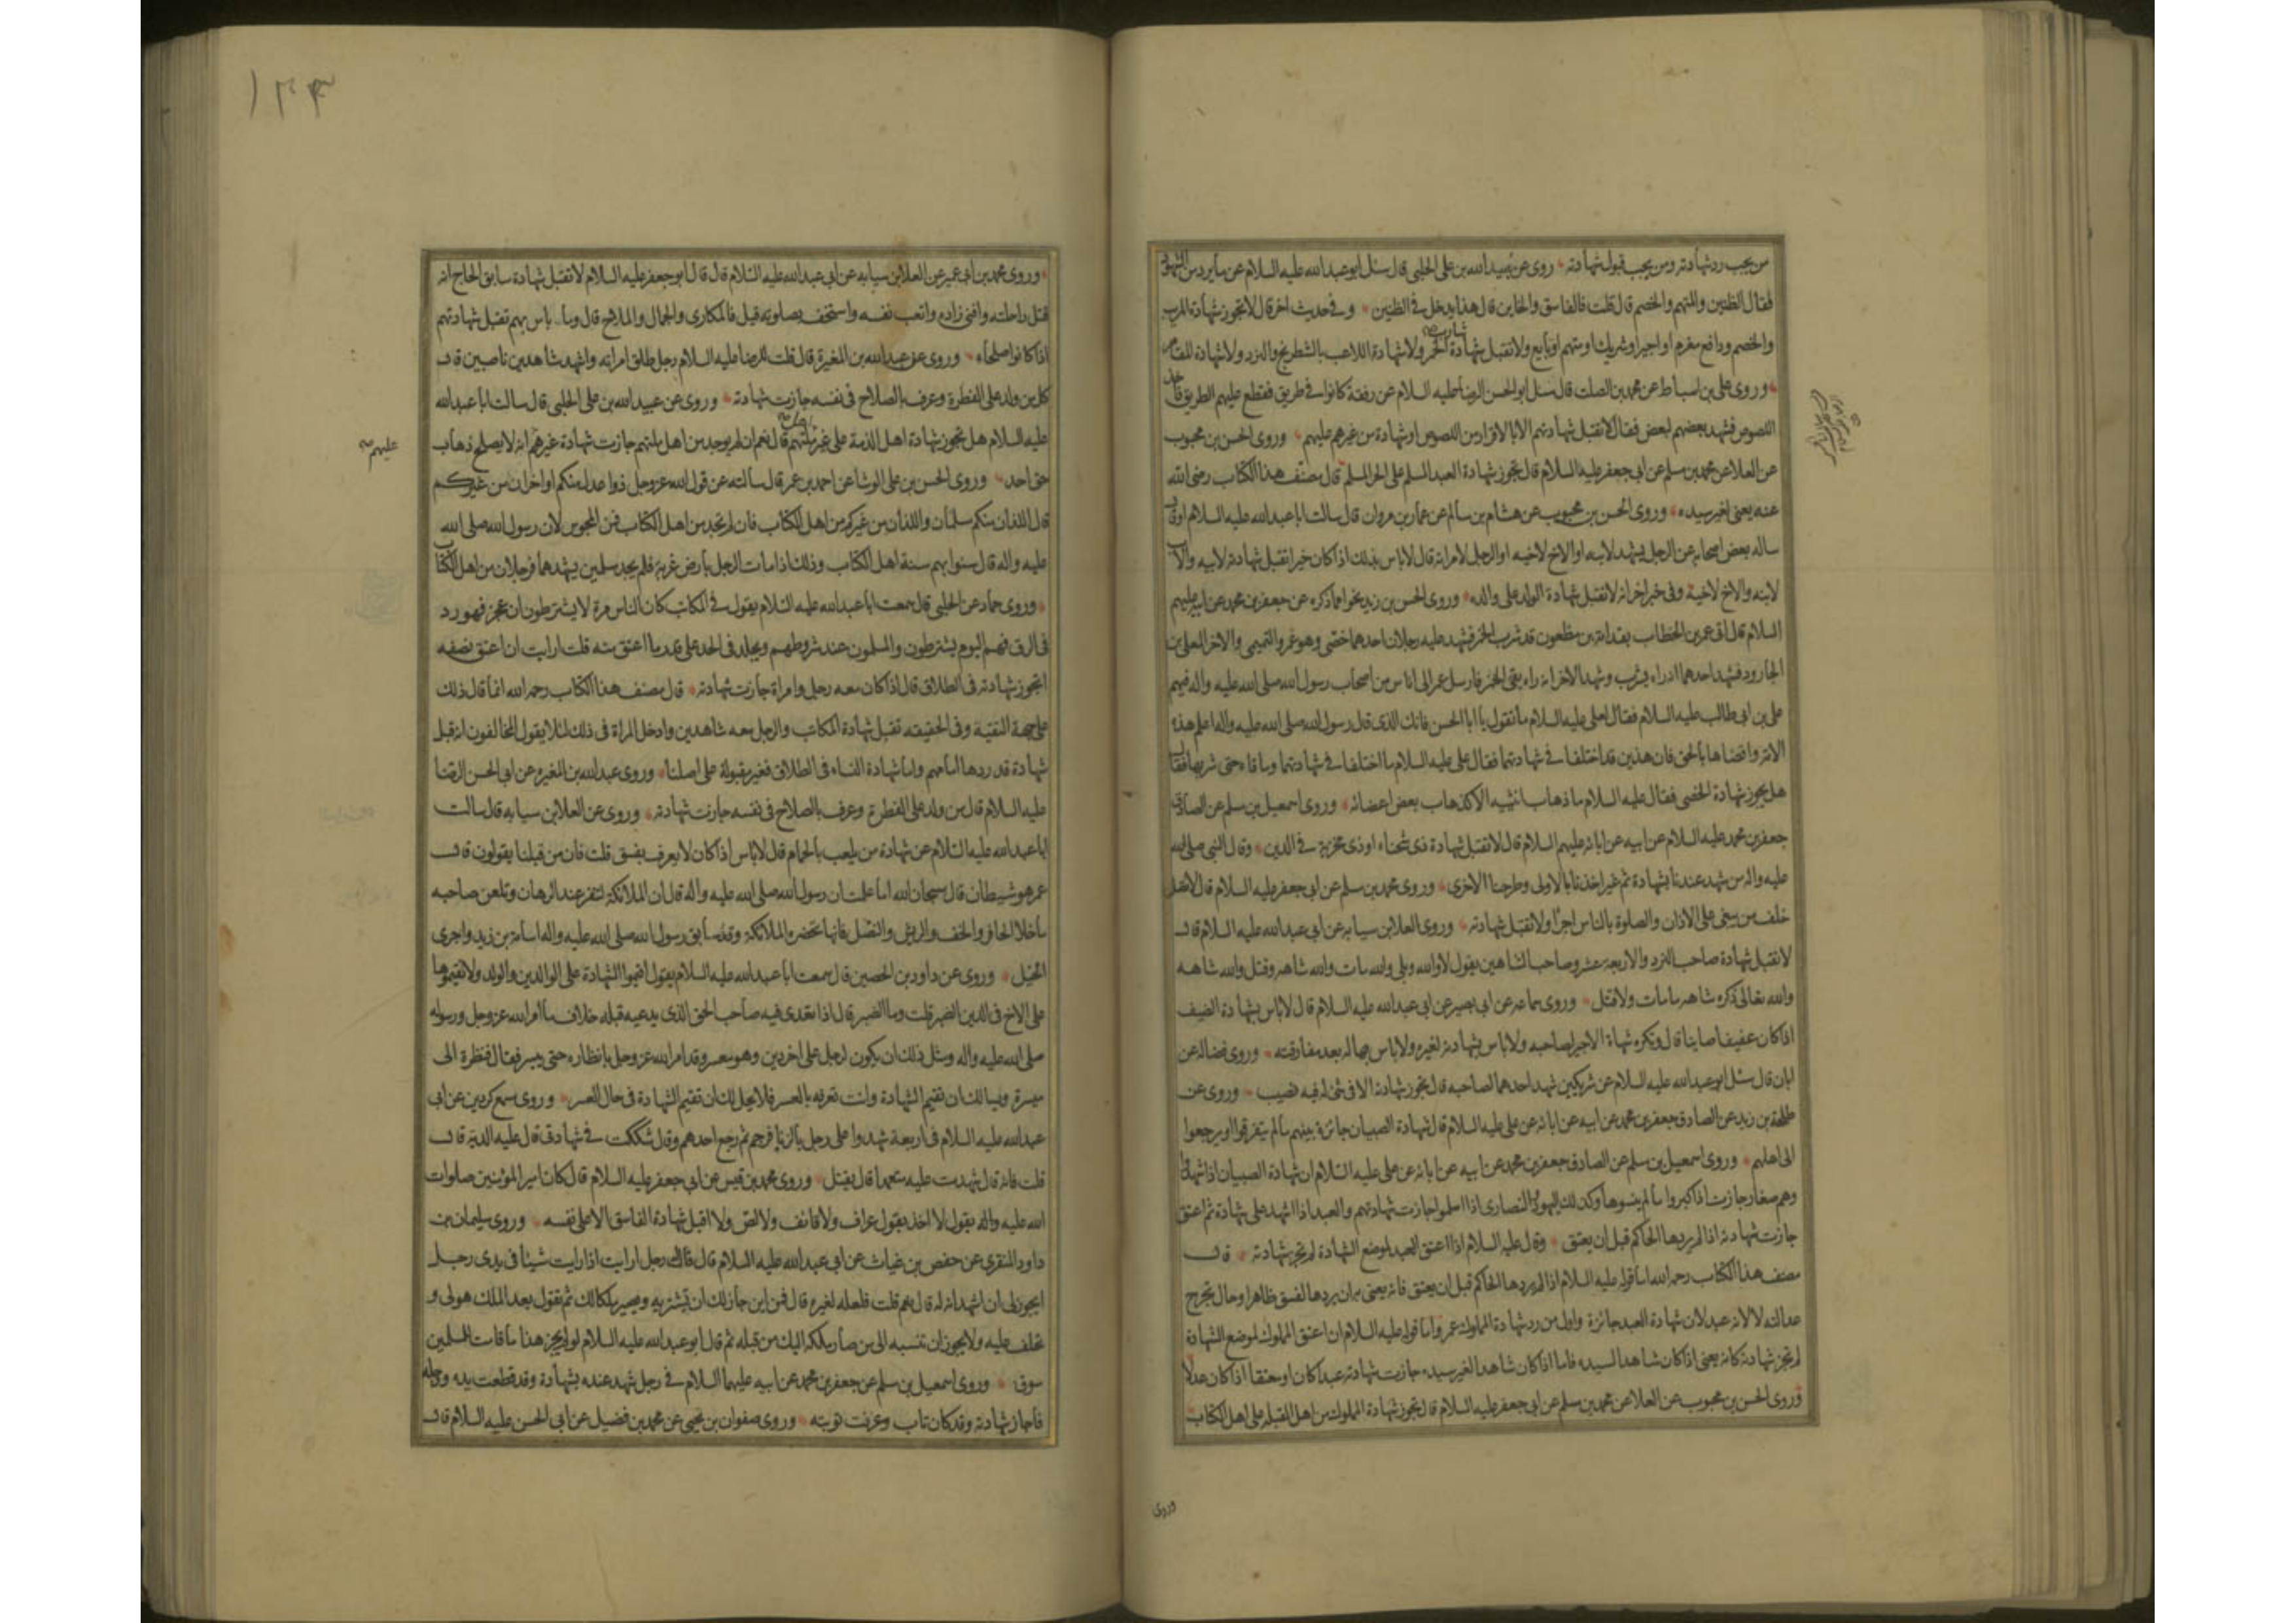 من يجب رد شهادته ومن يجب قبول شهادته روى عن عبيد الله بن على الحلبى قال سئل ابو عبد الله عليه السلام عن ما يرد من الشهود
فقال الظنين والمتهم والخصم قال قلت فالفاسق والخاين قال هذا يدخل فى الظنين وفى حديث اخر قال لا تجوز شهادة المريب
والخصم ودافع مغرم او اجير او شريك او متهم او تابع ولا تقبل شهادة شارب الخمر ولا شهادة اللاعب بالشطرنج والنرد ولا شهادة المقامر
وروى على بن اسباط عن محمد بن الصلت قال سئل ابو الحسن الرضا عليه السلام عن رفقة كانوا فى طريق فقطع عليهم الطريق فاخذ
اللصوص فشهد بعضهم لبعض فقال لا تقبل شهادتهم الا بالاقرار من اللصوص او شهادة من غيرهم عليهم وروى الحسن بن محبوب
عن العلا عن محمد بن مسلم عن ابى جعفر عليه السلام قال تجوز شهادة العبد المسلم على الحر المسلم قال مصنف هذا الكتاب رضى الله
عنه يعنى لغير سيده وروى الحسن بن محبوب عن هشام بن سالم عن عمار بن مروان قال سالت ابا عبد الله عليه السلام او قال
ساله بعض اصحابه عن الرجل يشهد لابيه او الاخ لاخيه او الرجل لامراته قال لا باس بذلك اذا كان خيرا تقبل شهادته لابيه والاب
لابنه والاخ لاخيه وفى خبر اخر انه لا تقبل شهادة الولد على والده وروى الحسن بن زيد نحوا مما ذكره عن جعفر بن محمد عن ابيه عليهم
السلام قال اتى عمر بن الخطاب بقدامة بن مظعون قد شرب الخمر فشهد عليه رجلان احدهما خصى وهو عمرو التميمى والاخر المعلى بن
الجارود فشهد احدهما انه راه يشرب وشهد الاخر انه راه يقى الخمر فارسل عمر الى اناس من اصحاب رسول الله صلى الله عليه واله فيهم
على بن ابى طالب عليه السلام فقال لعلى عليه السلام ما تقول يا ابا الحسن فانك الذى قال رسول الله صلى الله عليه واله اعلم هذه
الامة واقضاها بالحق فان هذين قد اختلفا فى شهادتهما فقال على عليه السلام ما اختلفا فى شهادتهما وما قاءه حتى شربها فقال
هل يجوز شهادة الخصى فقال عليه السلام ما ذهاب انثييه الا كذهاب بعض اعضائه وروى اسمعيل بن مسلم عن الصادق
جعفر بن محمد عليه السلام عن ابيه عن ابائه عليهم السلام قال لا تقبل شهادة ذى شحناء او ذى مخزية فى الدين وقال النبى صلى الله
عليه واله من شهد عندنا بشهادة ثم غير اخذنا بالاولى وطرحنا الاخرى وروى محمد بن مسلم عن ابى جعفر عليه السلام قال لا تصل
خلف من يبغى على الاذان والصلوة بالناس اجرا ولا تقبل شهادته وروى العلا بن سيابه عن ابى عبد الله عليه السلام قال
لا تقبل شهادة صاحب النرد والاربعة عشر وصاحب الشاهين يقول لا والله وبلى والله مات والله شاهه وقتل والله شاهه
والله تعالى ذكره شاهه ما مات ولا قتل وروى سماعه عن ابى بصير عن ابى عبد الله عليه السلام قال لا باس بشهادة الضيف
اذا كان عفيفا صاينا قال ويكره شهادة الاجير لصاحبه ولا باس بشهادته لغيره ولا باس بها له بعد مفارقته وروى فضاله عن
ابان قال سئل ابو عبد الله عليه السلام عن شريكين شهد احدهما لصاحبه قال تجوز شهادته الا فى شئ له فيه نصيب وروى عن
طلحة بن زيد عن الصادق جعفر بن محمد عن ابيه عن ابائه عن على عليه السلام قال شهادة الصبيان جائزة بينهم ما لم يتفرقوا او يرجعوا
الى اهلهم وروى اسمعيل بن مسلم عن الصادق جعفر بن محمد عن ابيه عن ابائه عن على عليه السلام ان شهادة الصبيان اذا شهدوا
وهم صغار جازت اذا كبروا ما لم ينسوها وكذلك اليهود والنصارى اذا اسلموا جازت شهادتهم والعبد اذا اشهد على شهادة ثم اعتق
جازت شهادته اذا لم يردها الحاكم قبل ان يعتق وقال عليه السلام اذا اعتق العبد لموضع الشهادة لم تجز شهادته قال
مصنف هذا الكتاب رحمه الله اما قوله عليه السلام اذا لم يردها الحاكم قبل ان يعتق فانه يعنى به ان يردها لفسق ظاهر او حال تجرح
عدالته لا لانه عبد لان شهادة العبد جائزة واول من رد شهادة المملوك عمر واما قوله عليه السلام ان اعتق المملوك لموضع الشهادة
لم تجز شهادته كانه يعنى اذا كان شاهدا لسيده فاما اذا كان شاهدا لغير سيده جازت شهادته عبدا كان او معتقا اذا كان عدلا
وروى الحسن بن محبوب عن العلا عن محمد بن مسلم عن ابى جعفر عليه السلام قال تجوز شهادة المملوك من اهل القبلة على اهل الكتاب
وروى
١٢٣
وروى محمد بن ابى عمير عن العلا بن سيابه عن ابى عبد الله عليه السلام قال قال ابو جعفر عليه السلام لا تقبل شهادة سابق الحاج انه
قتل راحلته وافنى زاده واتعب نفسه واستخف بصلوته قيل فالمكارى والجمال والملاح قال وما باس بهم تقبل شهادتهم
اذا كانوا صلحاء وروى عن عبد الله بن المغيرة قال قلت للرضا عليه السلام رجل طلق امراته واشهد شاهدين ناصبين قال
كل من ولد على الفطرة وعرف بالصلاح فى نفسه جازت شهادته وروى عن عبيد الله بن على الحلبى قال سالت ابا عبد الله
عليه السلام هل تجوز شهادة اهل الذمة على غير اهل ملتهم قال نعم ان لم يوجد من اهل ملتهم جازت شهادة غيرهم انه لا يصلح ذهاب
عليهم صح
حق احد وروى الحسن بن على الوشا عن احمد بن عمر قال سالته عن قول الله عز وجل ذوا عدل منكم او اخران من غيركم
قال اللذان منكم مسلمان واللذان من غيركم من اهل الكتاب فان لم تجد من اهل الكتاب فمن المجوس لان رسول الله صلى الله
عليه واله قال سنوا بهم سنة اهل الكتاب وذلك اذا مات الرجل بارض غربة فلم يجد مسلمين يشهدهما فرجلان من اهل الكتاب
وروى حماد عن الحلبى قال سمعت ابا عبد الله عليه السلام يقول فى المكاتب كان الناس مرة لا يشترطون ان عجز فهو رد
فى الرق فهم اليوم يشترطون والمسلمون عند شروطهم ويجلد فى الحد على قدر ما اعتق منه قلت ارايت ان اعتق نصفه
اتجوز شهادته فى الطلاق قال اذا كان معه رجل وامراة جازت شهادته قال مصنف هذا الكتاب رحمه الله انما قال ذلك
على جهة التقية وفى الحقيقه تقبل شهادة المكاتب والرجل معه شاهدين وادخل المراة فى ذلك لئلا يقول المخالفون انه قبل
شهادة قد ردها امامهم واما شهادة النساء فى الطلاق فغير مقبولة على اصلنا وروى عبد الله بن المغيره عن ابى الحسن الرضا
عليه السلام قال من ولد على الفطرة وعرف بالصلاح فى نفسه جازت شهادته وروى عن العلا بن سيابه قال سالت
ابا عبد الله عليه السلام عن شهادة من يلعب بالحمام قال لا باس اذا كان لا يعرف بفسق قلت فان من قبلنا يقولون قال
عمر هو شيطان قال سبحان الله اما علمت ان رسول الله صلى الله عليه واله قال ان الملائكة لتنفر عند الرهان وتلعن صاحبه
ما خلا الحافر والخف والريش والنصل فانها تحضره الملائكة وقد سابق رسول الله صلى الله عليه واله اسامة بن زيد واجرى
الخيل وروى عن داود بن الحصين قال سمعت ابا عبد الله عليه السلام يقول اقيموا الشهادة على الوالدين والولد ولا تقيموها
على الاخ فى الدين الضير قلت وما الضير قال اذا تعدى فيه صاحب الحق الذى يدعيه قبله خلاف ما امر الله عز وجل ورسوله
صلى الله عليه واله ومثل ذلك ان يكون لرجل على اخر دين وهو معسر وقد امر الله عز وجل بانظاره حتى ييسر فقال فنظرة الى
ميسرة ويسالك ان تقيم الشهادة وانت تعرفه بالعسر فلا يحل لك ان تقيم الشهادة فى حال العسر وروى مسمع كردين عن ابى
عبد الله عليه السلام فى اربعة شهدوا على رجل بالزنا فرجم ثم رجع احدهم وقال شككت فى شهادتى قال عليه الدية قال
قلت فانه قال شهدت عليه متعمدا قال يقتل وروى محمد بن قيس عن ابى جعفر عليه السلام قال كان امير المؤمنين صلوات
الله عليه واله يقول لا اخذ بقول عراف ولا قائف ولا لص ولا اقبل شهادة الفاسق الا على نفسه وروى سليمان بن
داود المنقرى عن حفص بن غياث عن ابى عبد الله عليه السلام قال قال له رجل ارايت اذا رايت شيئا فى يدى رجل
ايجوز لى ان اشهد انه له قال نعم قلت فلعله لغيره قال فمن اين جاز لك ان تشتريه ويصير ملكا لك ثم تقول بعد الملك هو لى و
تحلف عليه ولا يجوز ان تنسبه الى من صار ملكه اليك من قبله ثم قال ابو عبد الله عليه السلام لو لم يجز هذا ما قامت للمسلمين
سوق وروى اسمعيل بن مسلم عن جعفر بن محمد عن ابيه عليهما السلام فى رجل شهد عنده بشهادة وقد قطعت يده ورجله
فاجاز شهادته وقد كان تاب وعرفت توبته وروى صفوان بن يحيى عن محمد بن فضيل عن ابى الحسن عليه السلام قال